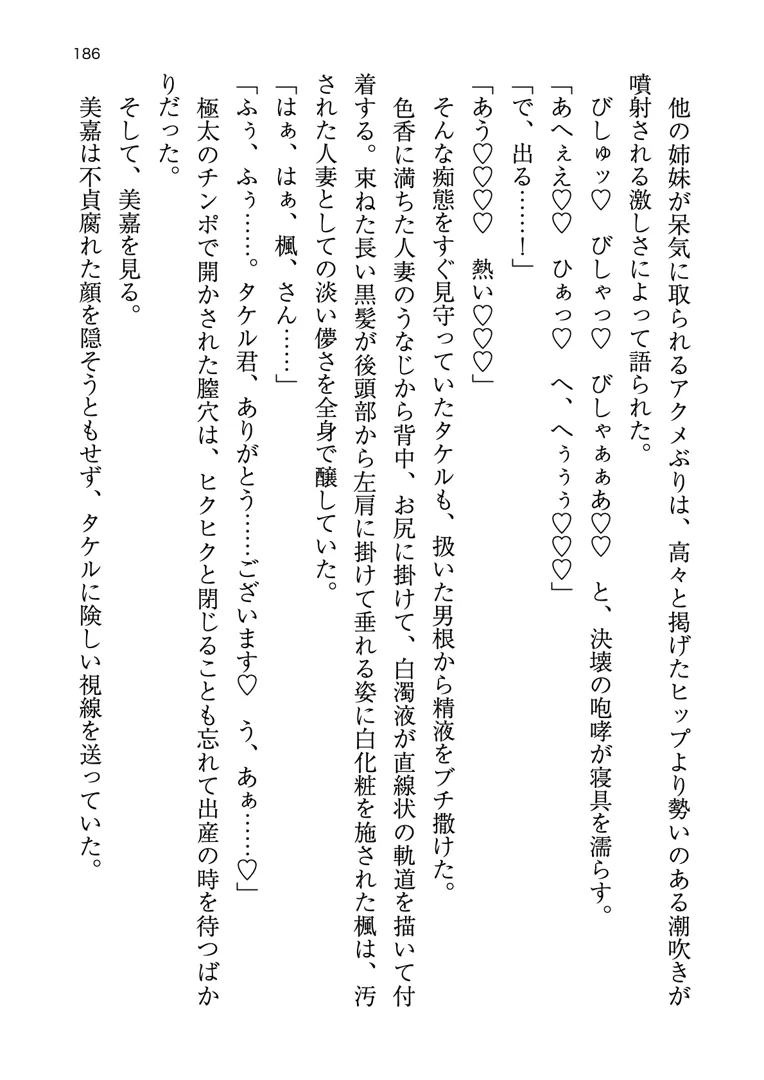 186
他の姉妹が呆気に取られるアクメぶりは、高々と掲げたヒップより勢いのある潮吹きが
噴射される激しさによって語られた。
びしゅッ♡　びしゃっ♡　びしゃぁぁあ♡♡　と、決壊の咆哮が寝具を濡らす。
「あへぇえ♡♡　ひぁっ♡　へ、へぅぅぅ♡♡♡」
「で、出る……！」
「あう♡♡♡♡　熱い♡♡♡」
そんな痴態をすぐ見守っていたタケルも、扱いた男根から精液をブチ撒けた。
色香に満ちた人妻のうなじから背中、お尻に掛けて、白濁液が直線状の軌道を描いて付
着する。束ねた長い黒髪が後頭部から左肩に掛けて垂れる姿に白化粧を施された楓は、汚
された人妻としての淡い儚さを全身で醸していた。
「はぁ、はぁ、楓、さん……」
「ふぅ、ふぅ……。タケル君、ありがとう……ございます♡　う、あぁ……♡」
極太のチンポで開かされた膣穴は、ヒクヒクと閉じることも忘れて出産の時を待つばか
りだった。
そして、美嘉を見る。
美嘉は不貞腐れた顔を隠そうともせず、タケルに険しい視線を送っていた。